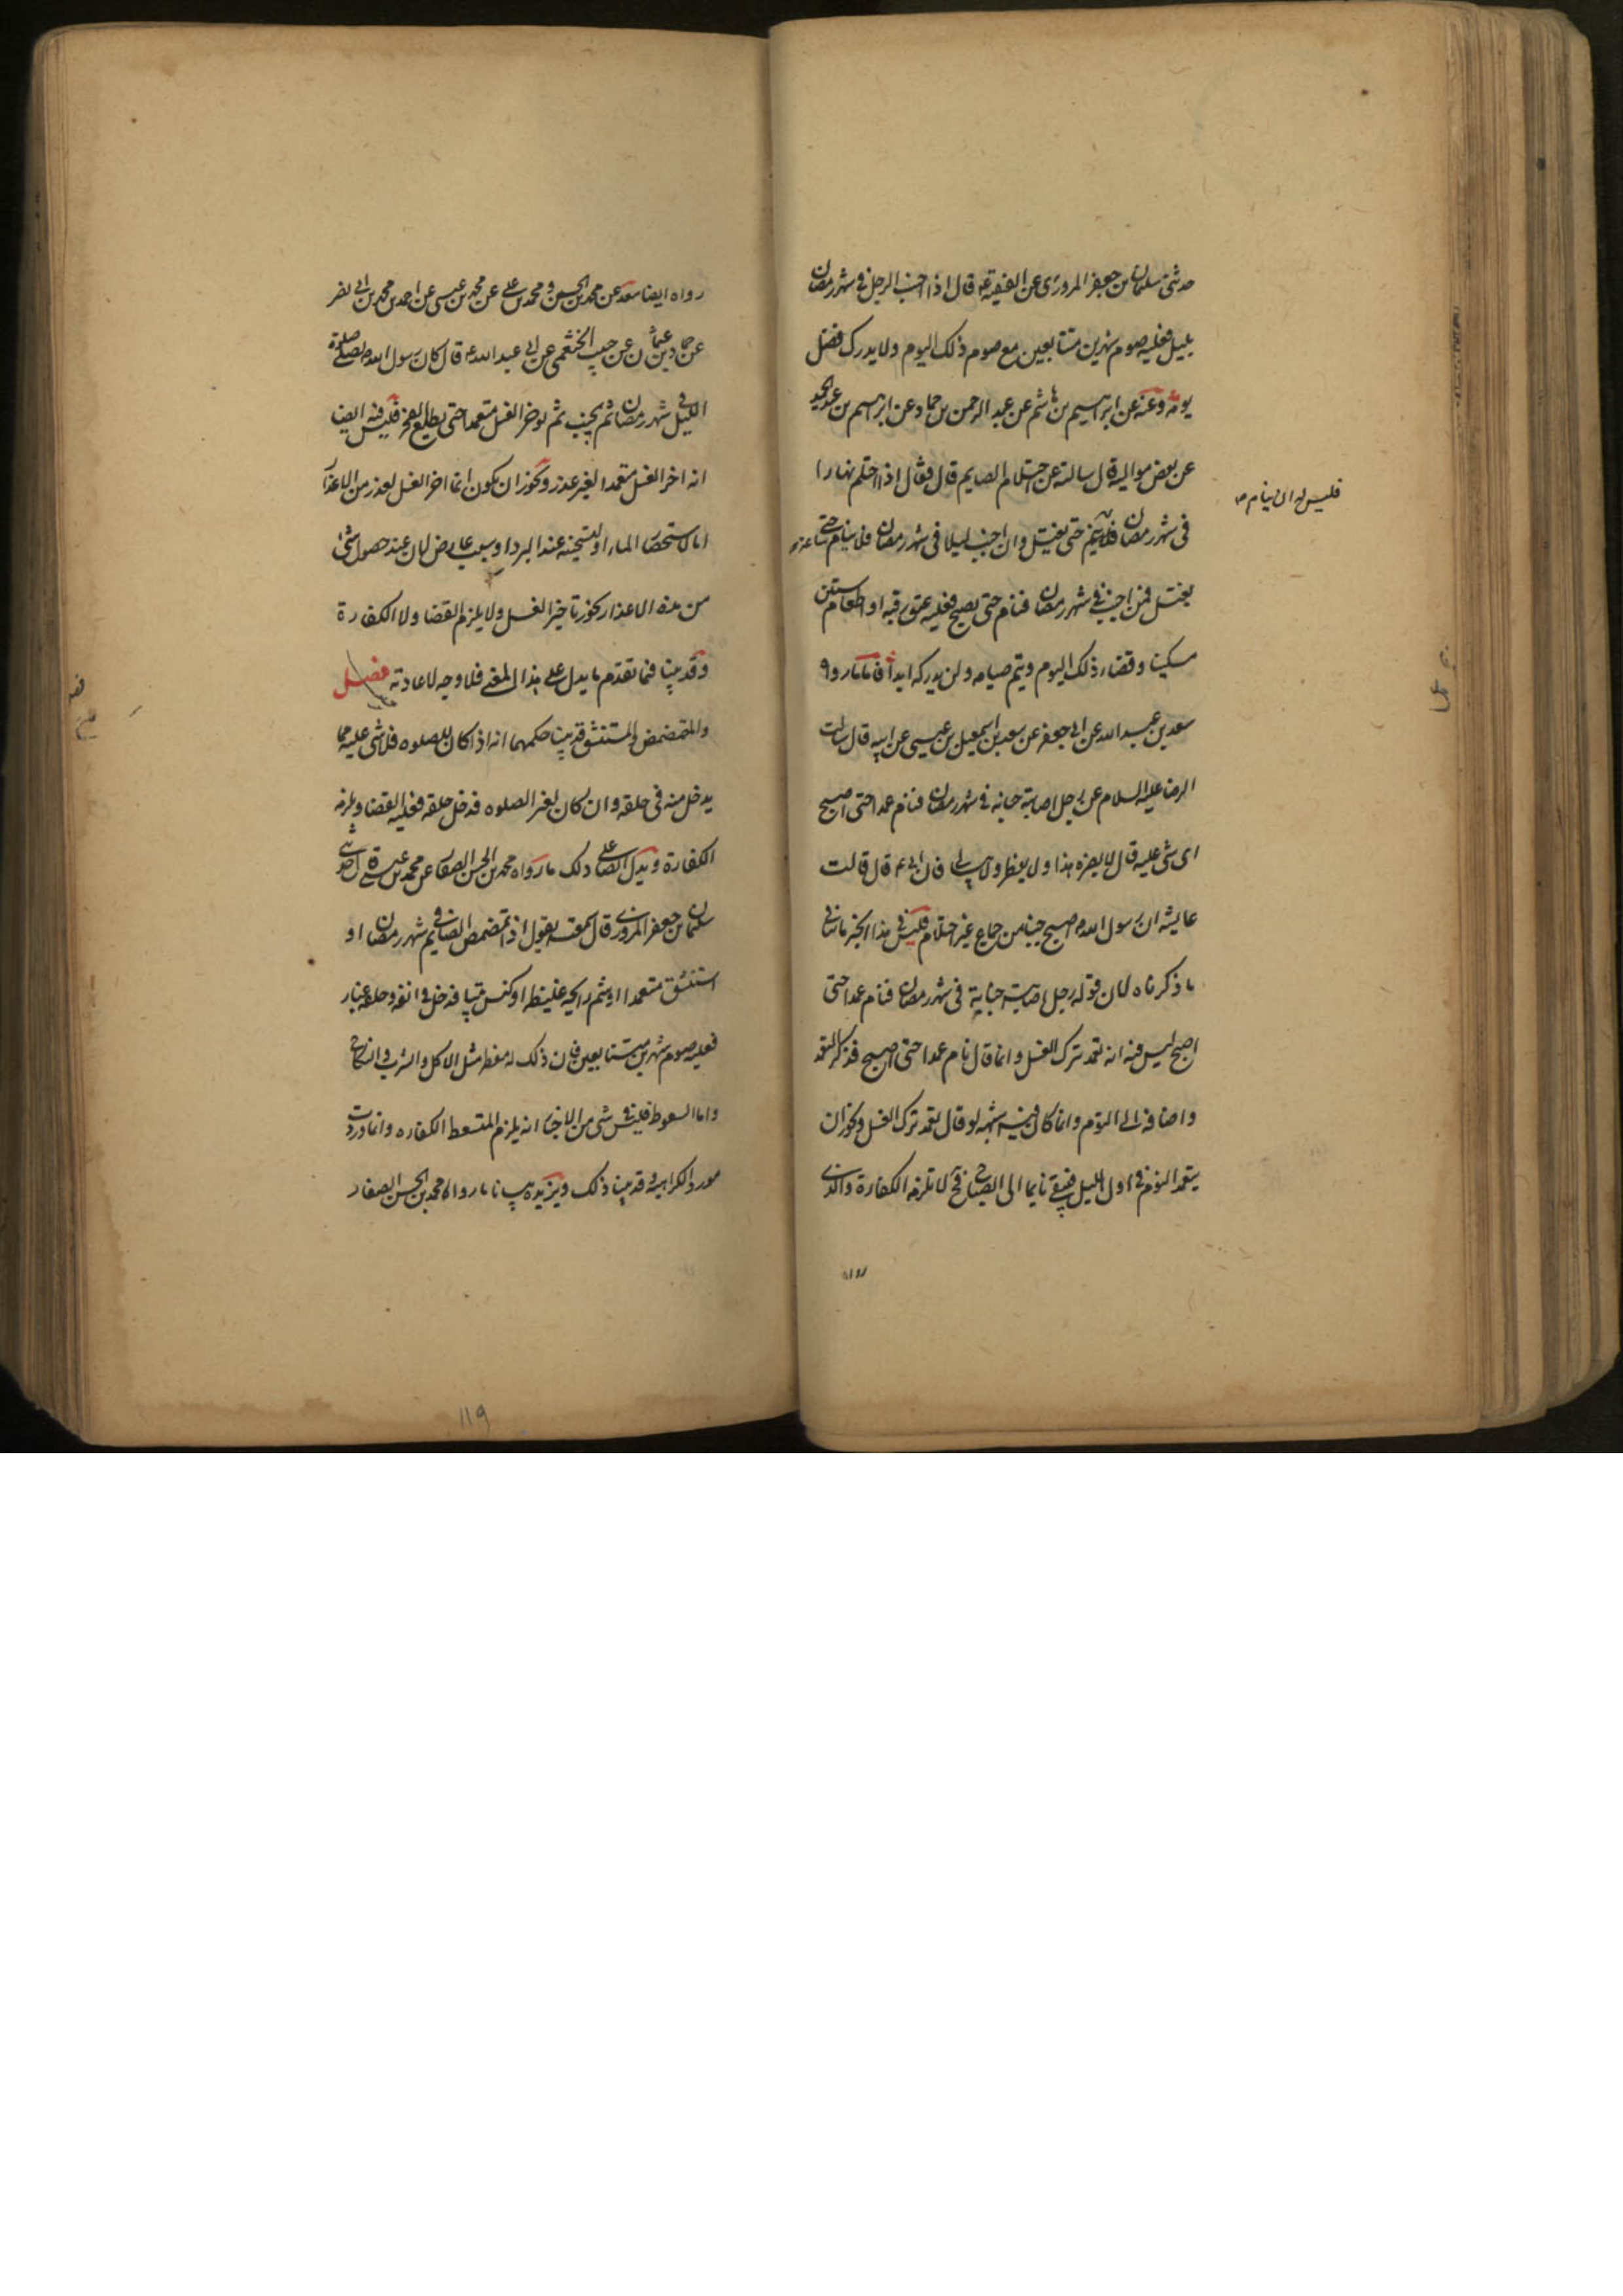 حدثنی سلیمان بن جعفر المروزی عن الفقیه ع قال اذا اجنب الرجل فی شهر رمضان
بلیل فعلیه صوم شهرین متتابعین مع صوم ذلک الیوم ولا یدرک فضل
یومه وعنه عن ابراهیم بن هاشم عن عبد الرحمن بن حماد عن ابراهیم بن عبد الحمید
عن بعض موالیه قال سالته عن احتلام الصایم قال فقال اذا احتلم نهارا
فی شهر رمضان فلا ینم حتی یغتسل وان اجنب لیلا فی شهر رمضان فلا ینام حتی
فلیس له ان ینام
یغتسل فمن اجنب فی شهر رمضان فنام حتی یصبح فعلیه عتق رقبه او اطعام ستین
مسکینا وقضاء ذلک الیوم ویتم صیامه ولن یدرکه ابدا فاما مارواه
سعد بن عبد الله عن ابی جعفر عن سعد بن اسمعیل بن عیسی عن ابیه قال سالت
الرضا علیه السلام عن رجل اصابته جنابه فی شهر رمضان فنام عمدا حتی اصبح
ای شی علیه قال لا یضره هذا ولا یفطر ولا یبالی فان ابی ع قال قالت
عایشه ان رسول الله اصبح جنبا من جماع غیر احتلام فلیس فی هذا الخبر ما ینافی
ما ذکرناه لان قوله رجل اصابته جنابة فی شهر رمضان فنام عمدا حتی
اصبح لیس فیه انه تعمد ترک الغسل وانما قال نام عمدا حتی اصبح فذکر التعمد
واضافه الی النوم وانما کان فیه شبهه لو قال تعمد ترک الغسل ویجوز ان
یتعمد النوم فی اول اللیل فیبقی نایما الی الصباح فح لا تلزمه الکفارة والذی
رواه ایضا سعد عن محمد بن الحسین ومحمد بن علی عن محمد بن عیسی عن احمد بن محمد بن ابی نصر
عن حماد بن عثمان عن حبیب الخثعمی عن ابی عبد الله ع قال کان رسول الله یصلی صلوة
اللیل فی شهر رمضان ثم یجنب ثم یوخر الغسل متعمدا حتی یطلع الفجر فلیس فیه ایضا
انه اخر الغسل متعمدا لغیر عذر ویجوز ان یکون انما اخر الغسل لعذر من الاعذار
اما لاستحضار الماء او لتسخینه عند البرد او بسبب عارض لان عند حصول شی
من هذه الاعذار یجوز تاخیر الغسل ولا یلزم القضا ولا الکفارة
وقد بینا فیما تقدم ما یدل علی هذا المعنی فلا وجه لاعادته فصل
والمتمضمض والمستنشق قد بینا حکمهما انه اذا کان للصلوه فلا شی علیه مما
یدخل منه فی حلقه وان کان لغیر الصلوه فدخل حلقه فعلیه القضا ویلزمه
الکفارة ویدل ایضا علی ذلک ما رواه محمد بن الحسن الصفار عن محمد بن عیسی قال حدثنی
سلیمان بن جعفر المروزی قال سمعته یقول اذا تمضمض الصایم فی شهر رمضان او
استنشق متعمدا او شم رایحه غلیظه او کنس بیتا فدخل فی انفه وحلقه غبار
فعلیه صوم شهرین متتابعین فان ذلک له مفطر مثل الاکل والشرب والنکاح
واما السعوط فلیس فی شی من الاخبار انه یلزم المتسعط الکفاره وانما وردت
مورد الکراهیه وقد بینا ذلک ویزیده بیانا ما رواه محمد بن الحسن الصفار
119